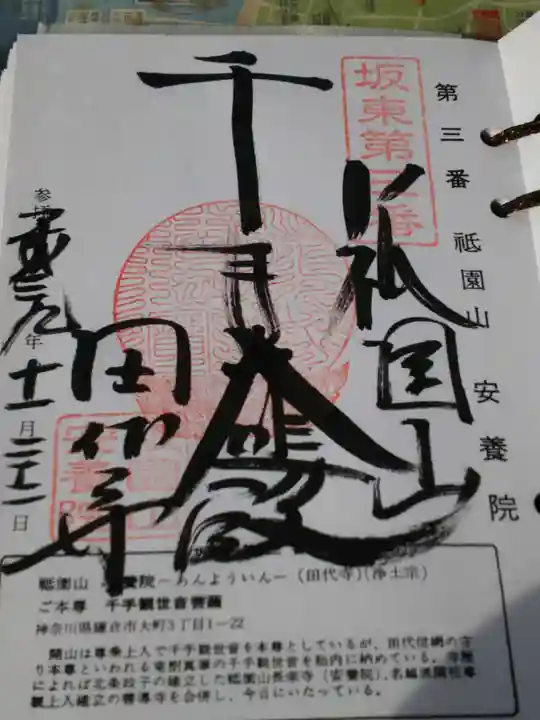 第三番 祗園山 安養院
坂東第三番
祇園山
千手大悲殿
田代寺
安養院
元年十一月二十二日
祗園山 安養院―あんよういん―(田代寺)(浄土宗)
ご本尊 千手観世音菩薩
神奈川県鎌倉市大町3丁目1―22
開山は尊乗上人で千手観世音を本尊としているが、田代信綱の守
り本尊といわれる竜樹真筆の千手観世音を胎内に納めている。寺歴
によれば北条政子の建立した祗園山長楽寺(安養院)、名越派開祖尊
観上人建立の善導寺を合併し、今日にいたっている。